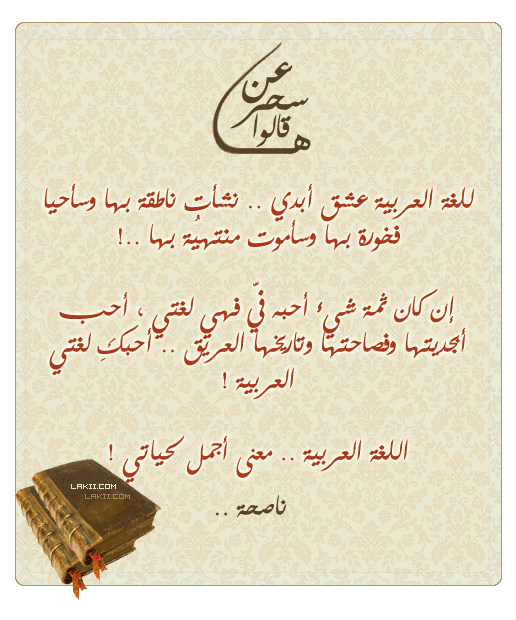 عن
سحر
قالوا
ها
للغة العربية عشق أبدي .. نشأت ناطقة بها وسأحيا
فخورة بها وسأموت منتهيُة بها ..!
إن كان ثمة شيء أحبه فيّ فهي لغتي ، أحب
أبجديتها وفصاحتها وتاريخها العريق .. أحبكِ لغتي
العربية !
اللغة العربية .. معنى أجمل لحياتي !
ناصحة ..
LAKII.COM
LAKII.COM